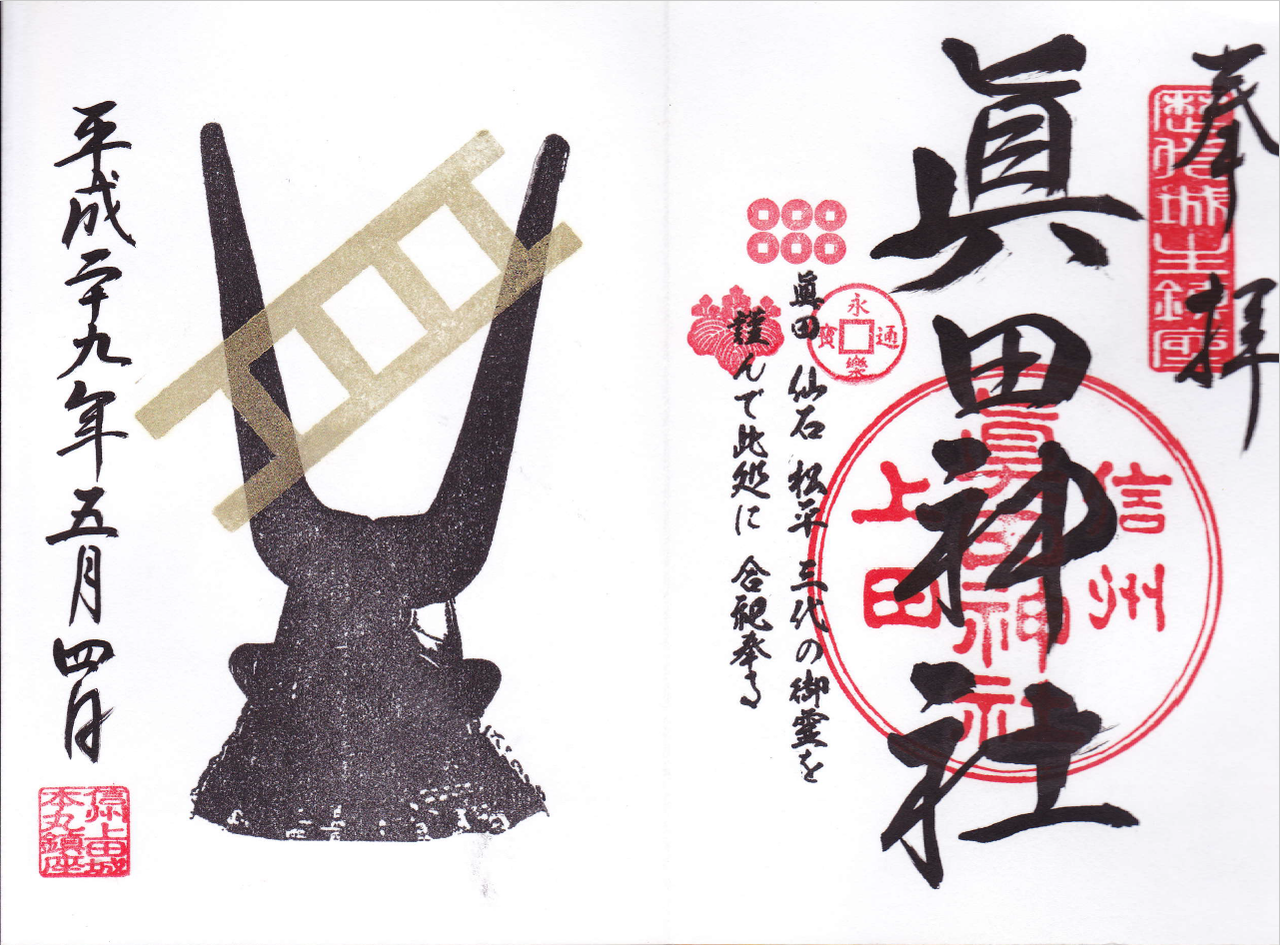 奉拝
歴代城主鎮座
眞田神社
信州
眞田神社
上田
永樂通寶
眞田 仙石 松平 三代の御霊を
謹んで此処に 合祀奉る
平成二十九年五月四日
上田城
本丸鎮座